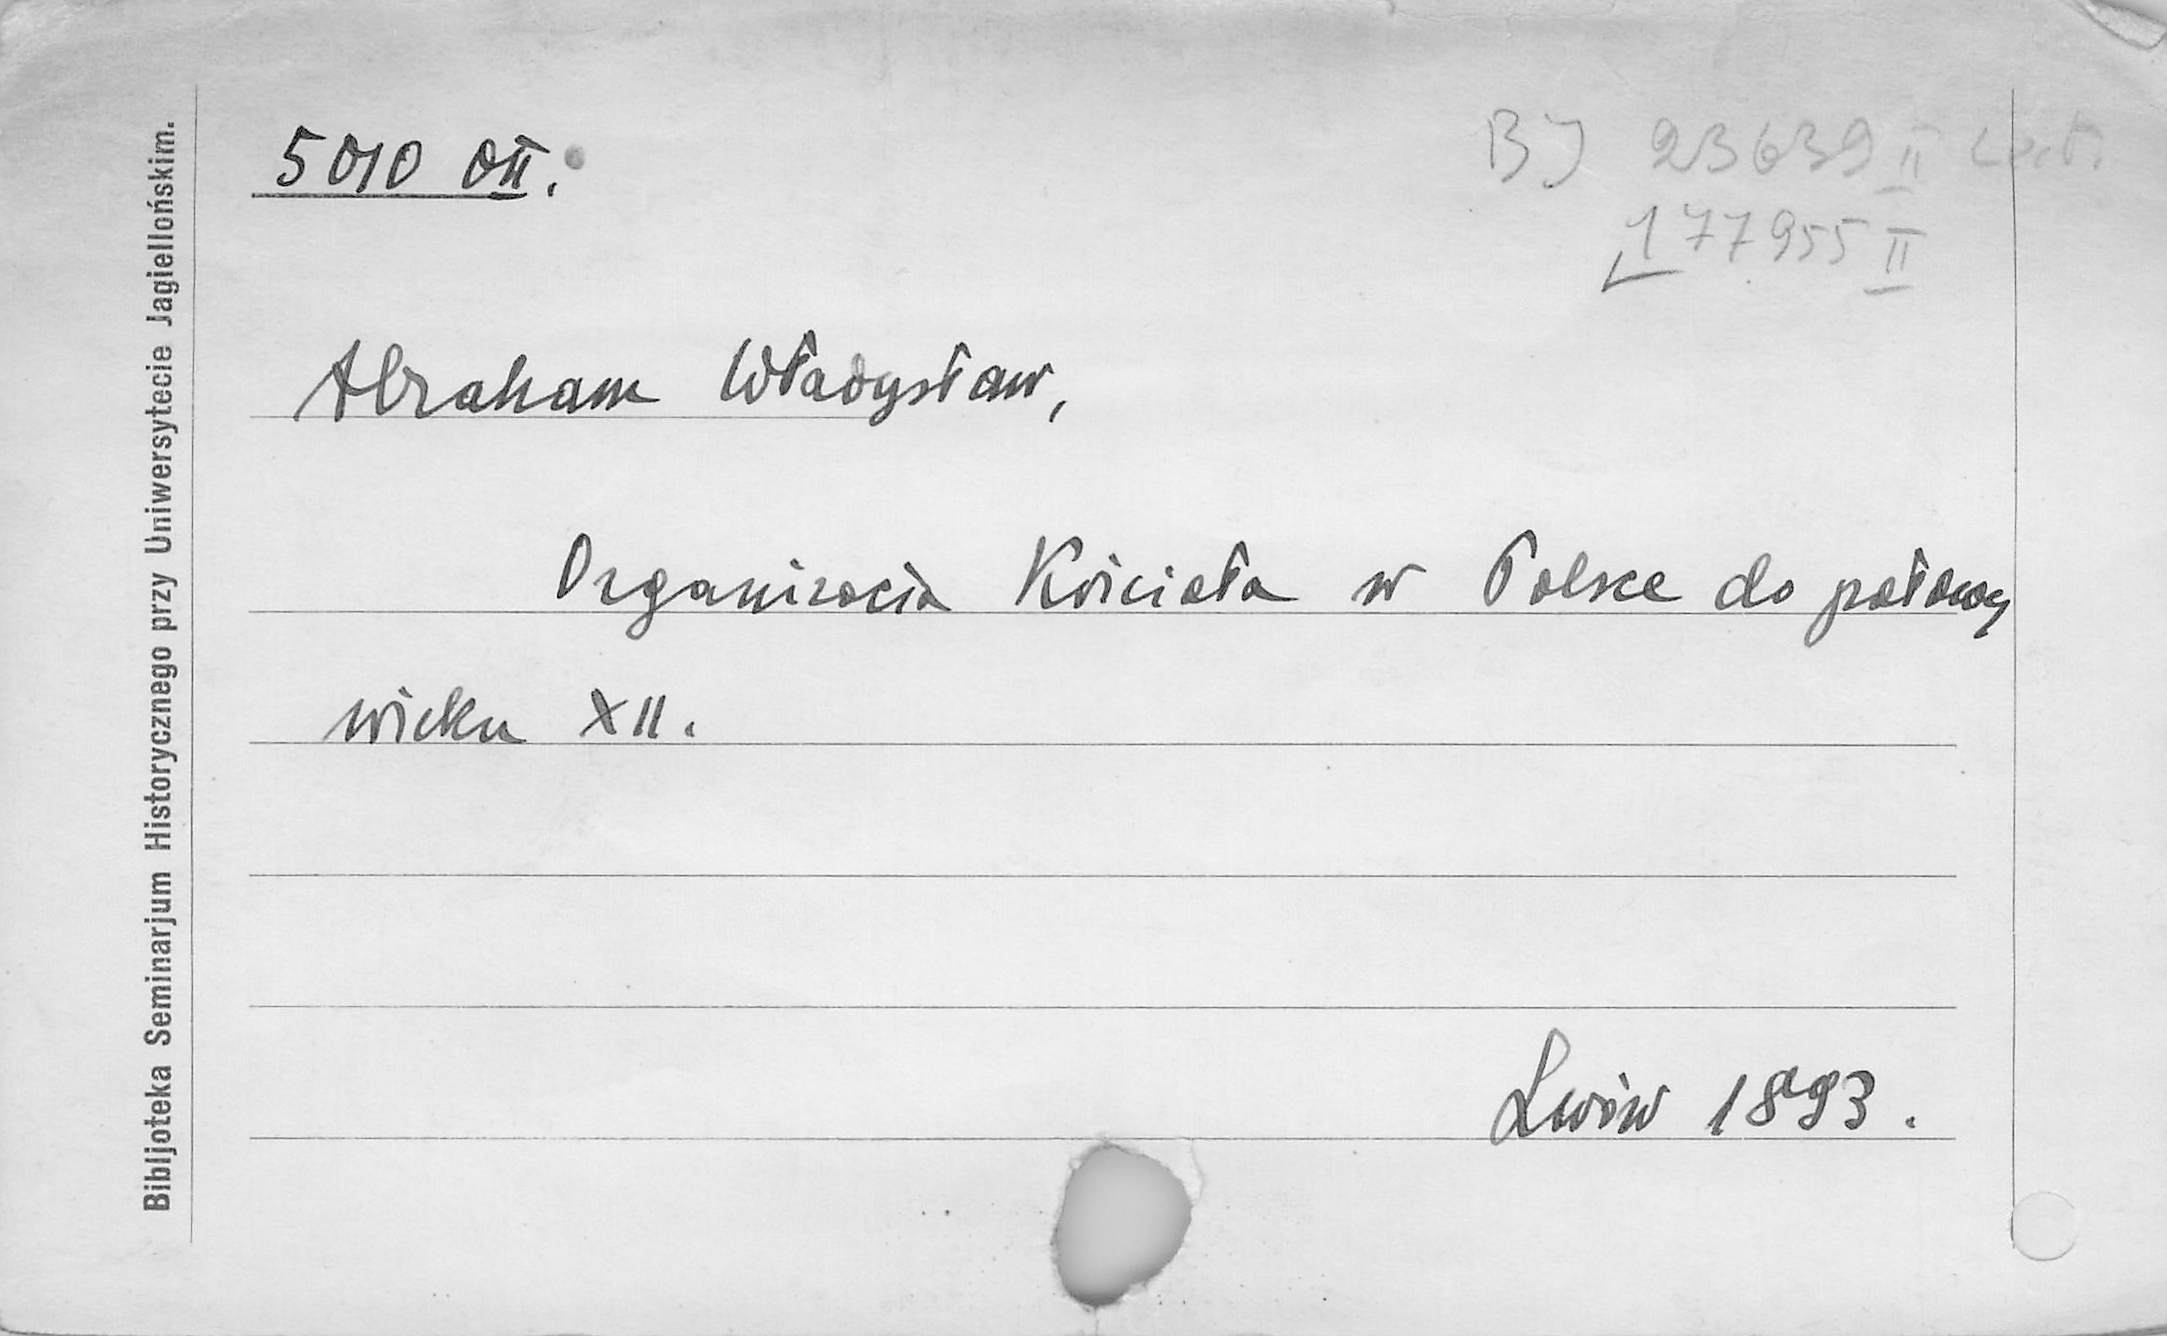 5010 OII.
BJ 23639 II
177955 II
Abraham Władysław,
Organizacia Kościoła w Polsce do połowy
wieku XII.
Lwów 1893.
Bibljoteka Seminarjum Historycznego przy Uniwersytecie Jagiellońskim.